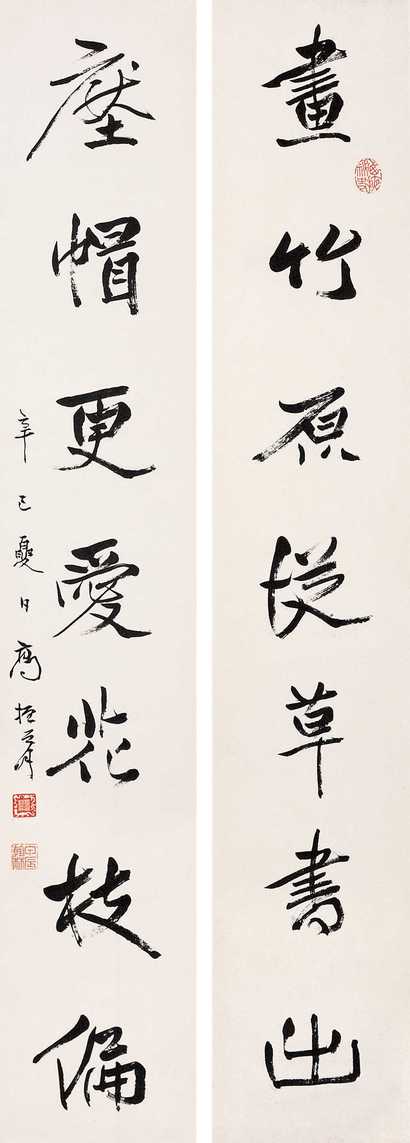 畫竹原從草書出
塵帽更愛花枝偏
辛巳夏日高振霄